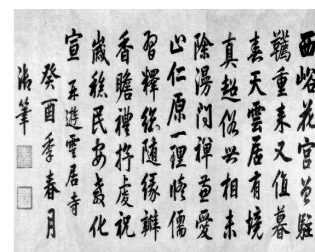 西峪花宮曾駐
韉重来又值暮
春天雲居有境
真超俗相未
除漫问禅兼愛
止仁原一理儒
習釋總随緣瓣
香瞻禮抒虔祝
歲稔民安敷化
宣 再遊雲居寺
癸酉季春月
御筆